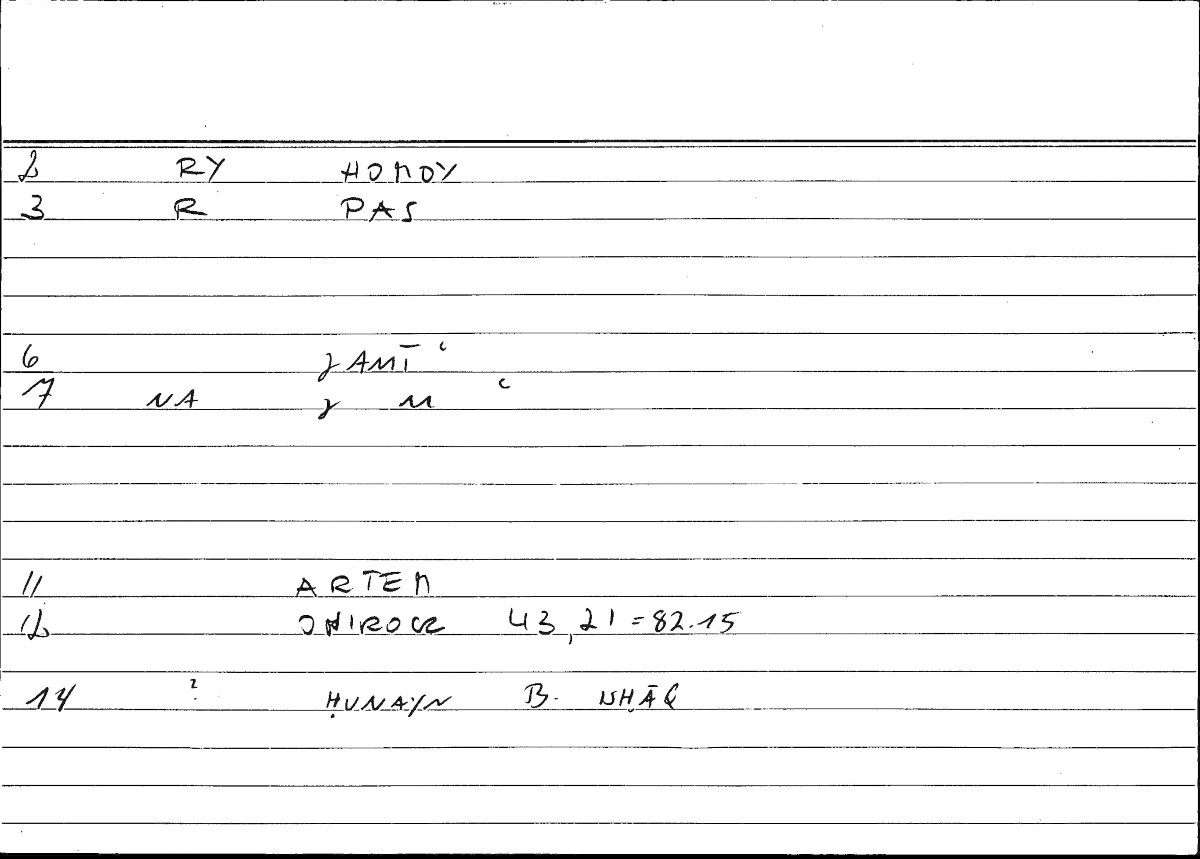 2 RY HOMOY
3 R PAS
6 ǧAMĪʿ
7 NA ǧ M ʿ
11 ARTEM
12 ONIROCR 43,21=82.15
14 ? ḤUNAYN B. ISḤĀQ